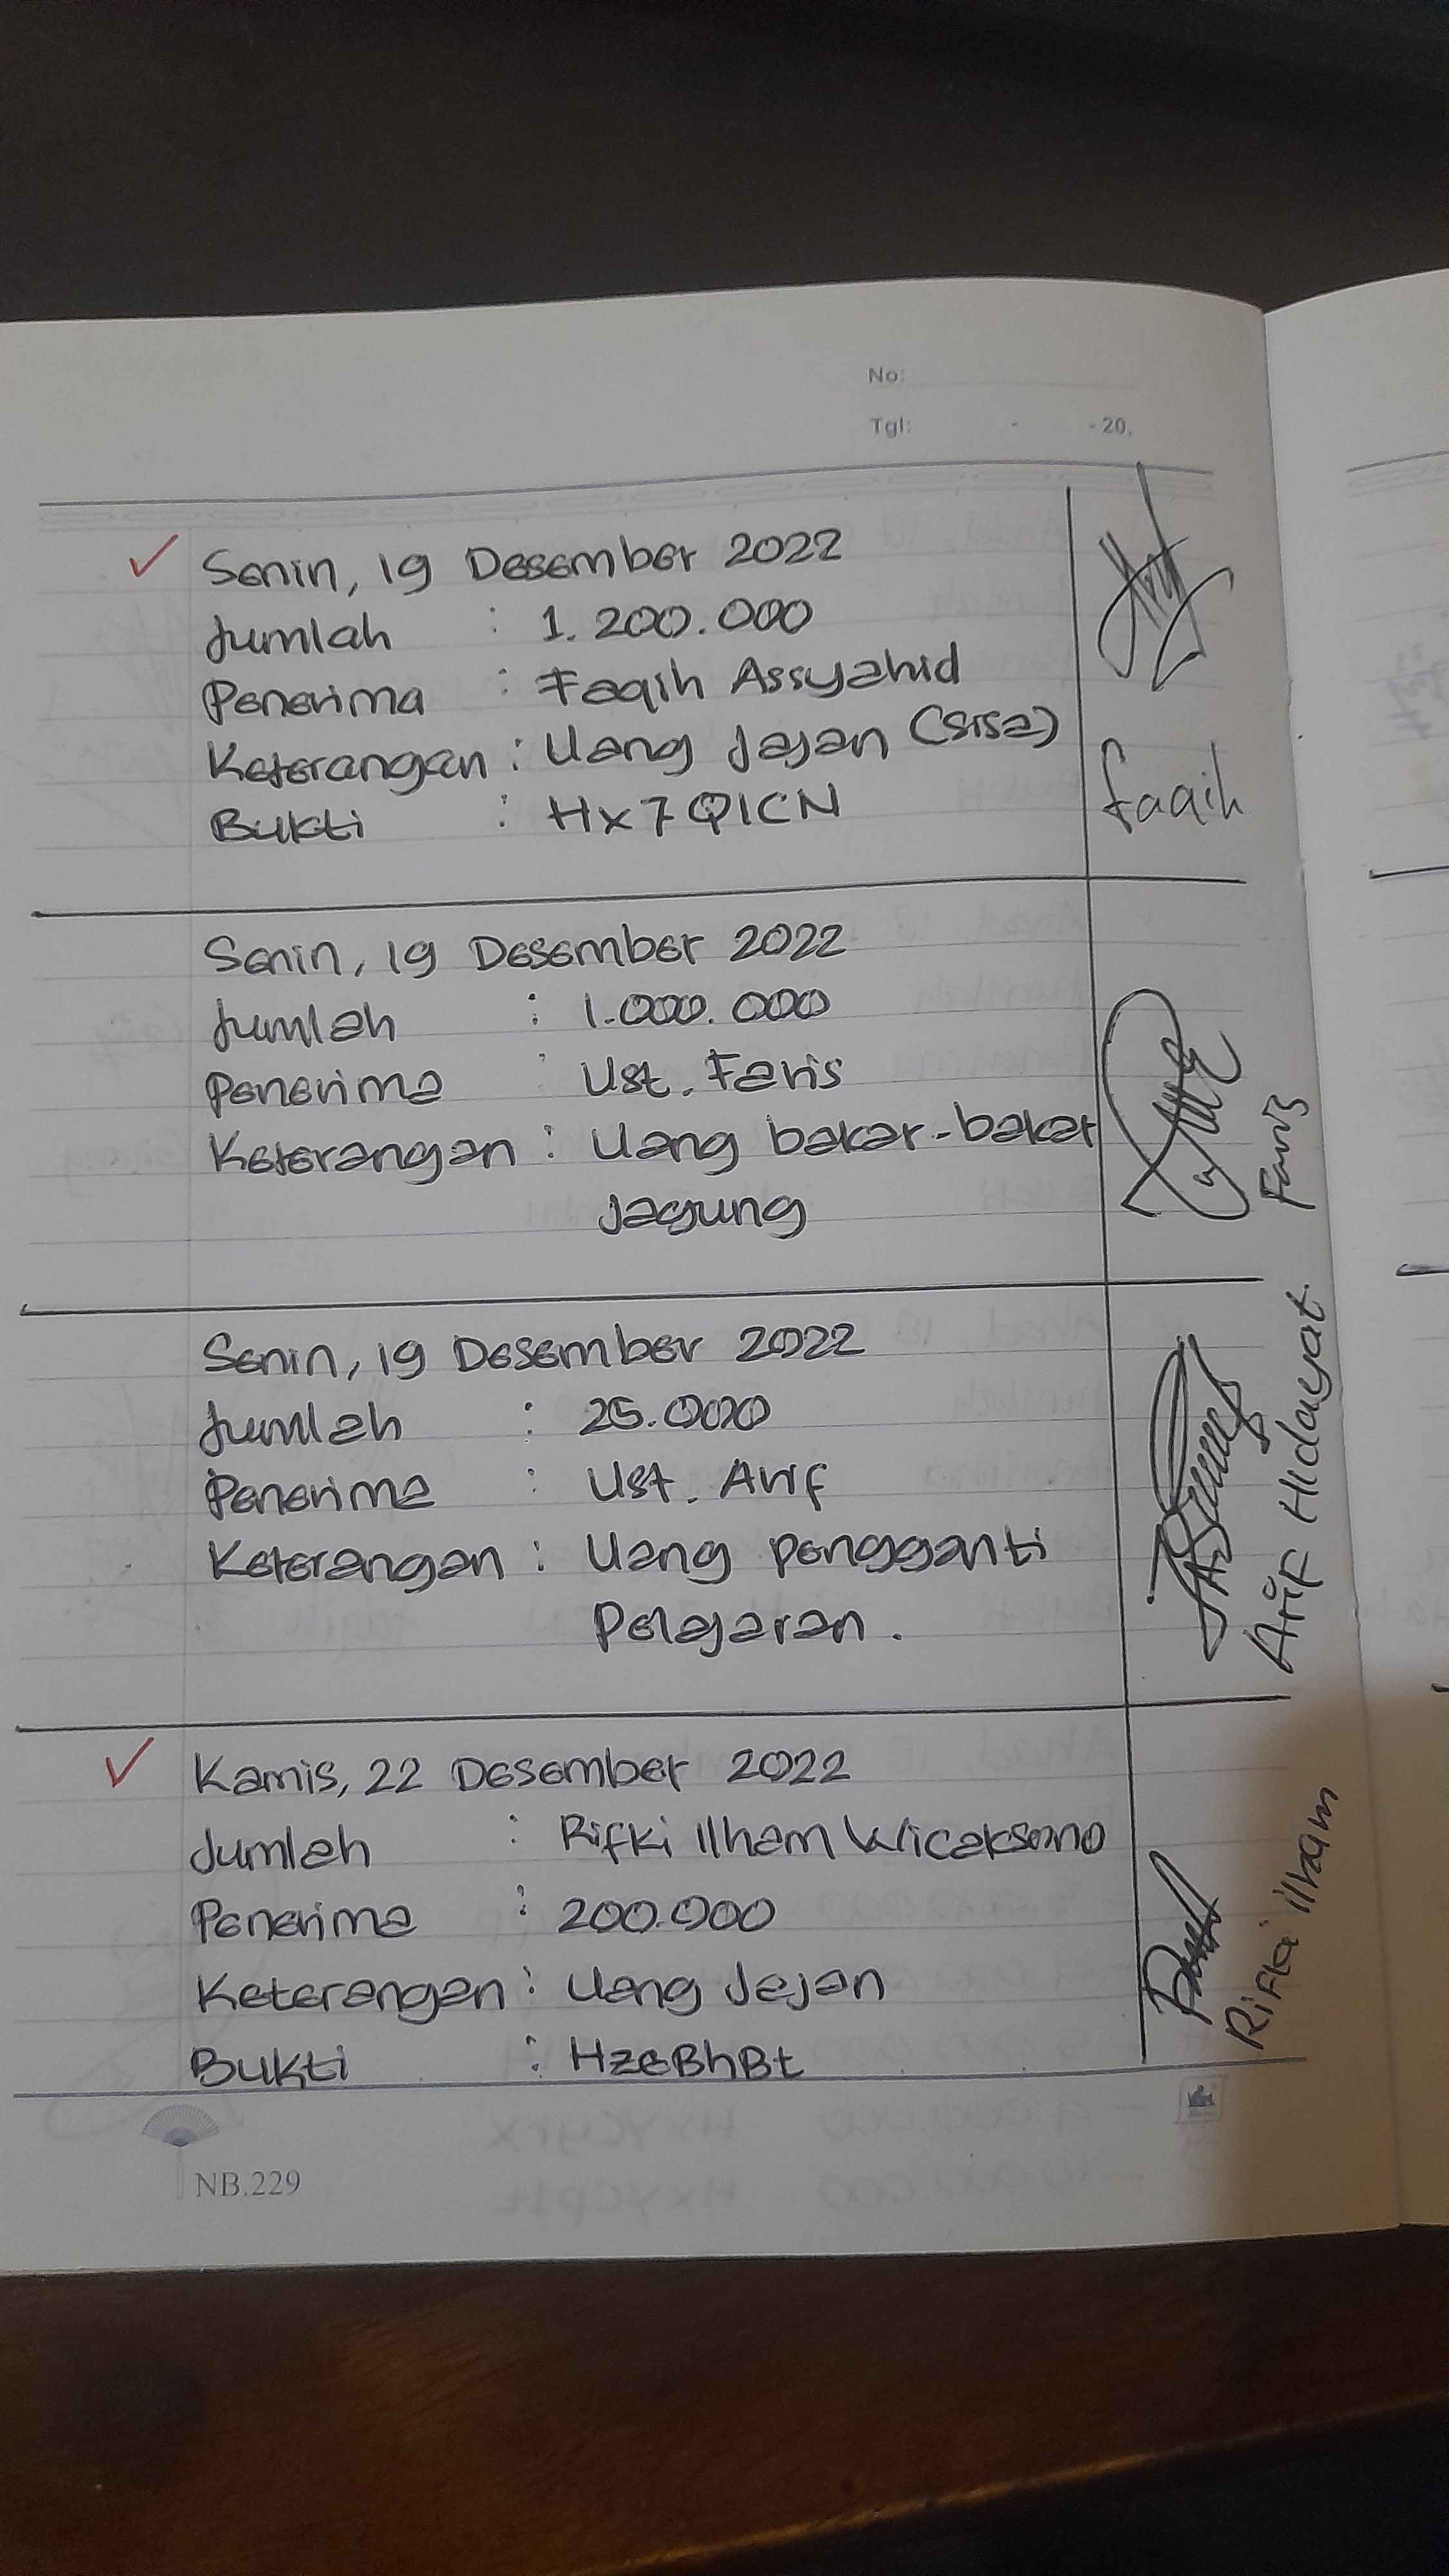 No:
Tgl: - - 20.
Senin, 19 Desember 2022
Jumlah : 1.200.000
Penerima : Faqih Assyahid
Keterangan : Uang Jajan (sisa)
Bukti : Hx7QICN
faqih
Senin, 19 Desember 2022
Jumlah : 1.000.000
Penerima : Ust. Faris
Keterangan : Uang bakar-bakar
Jagung
Faris
Senin, 19 Desember 2022
Jumlah : 25.000
Penerima : Ust. Arif
Keterangan : Uang pengganti
Pelajaran.
Arif Hidayat.
Kamis, 22 Desember 2022
Jumlah : Rifki Ilham Wicaksono
Penerima : 200.000
Keterangan : Uang Jajan
Bukti : HzeBhBt
Rifki ilham
NB.229